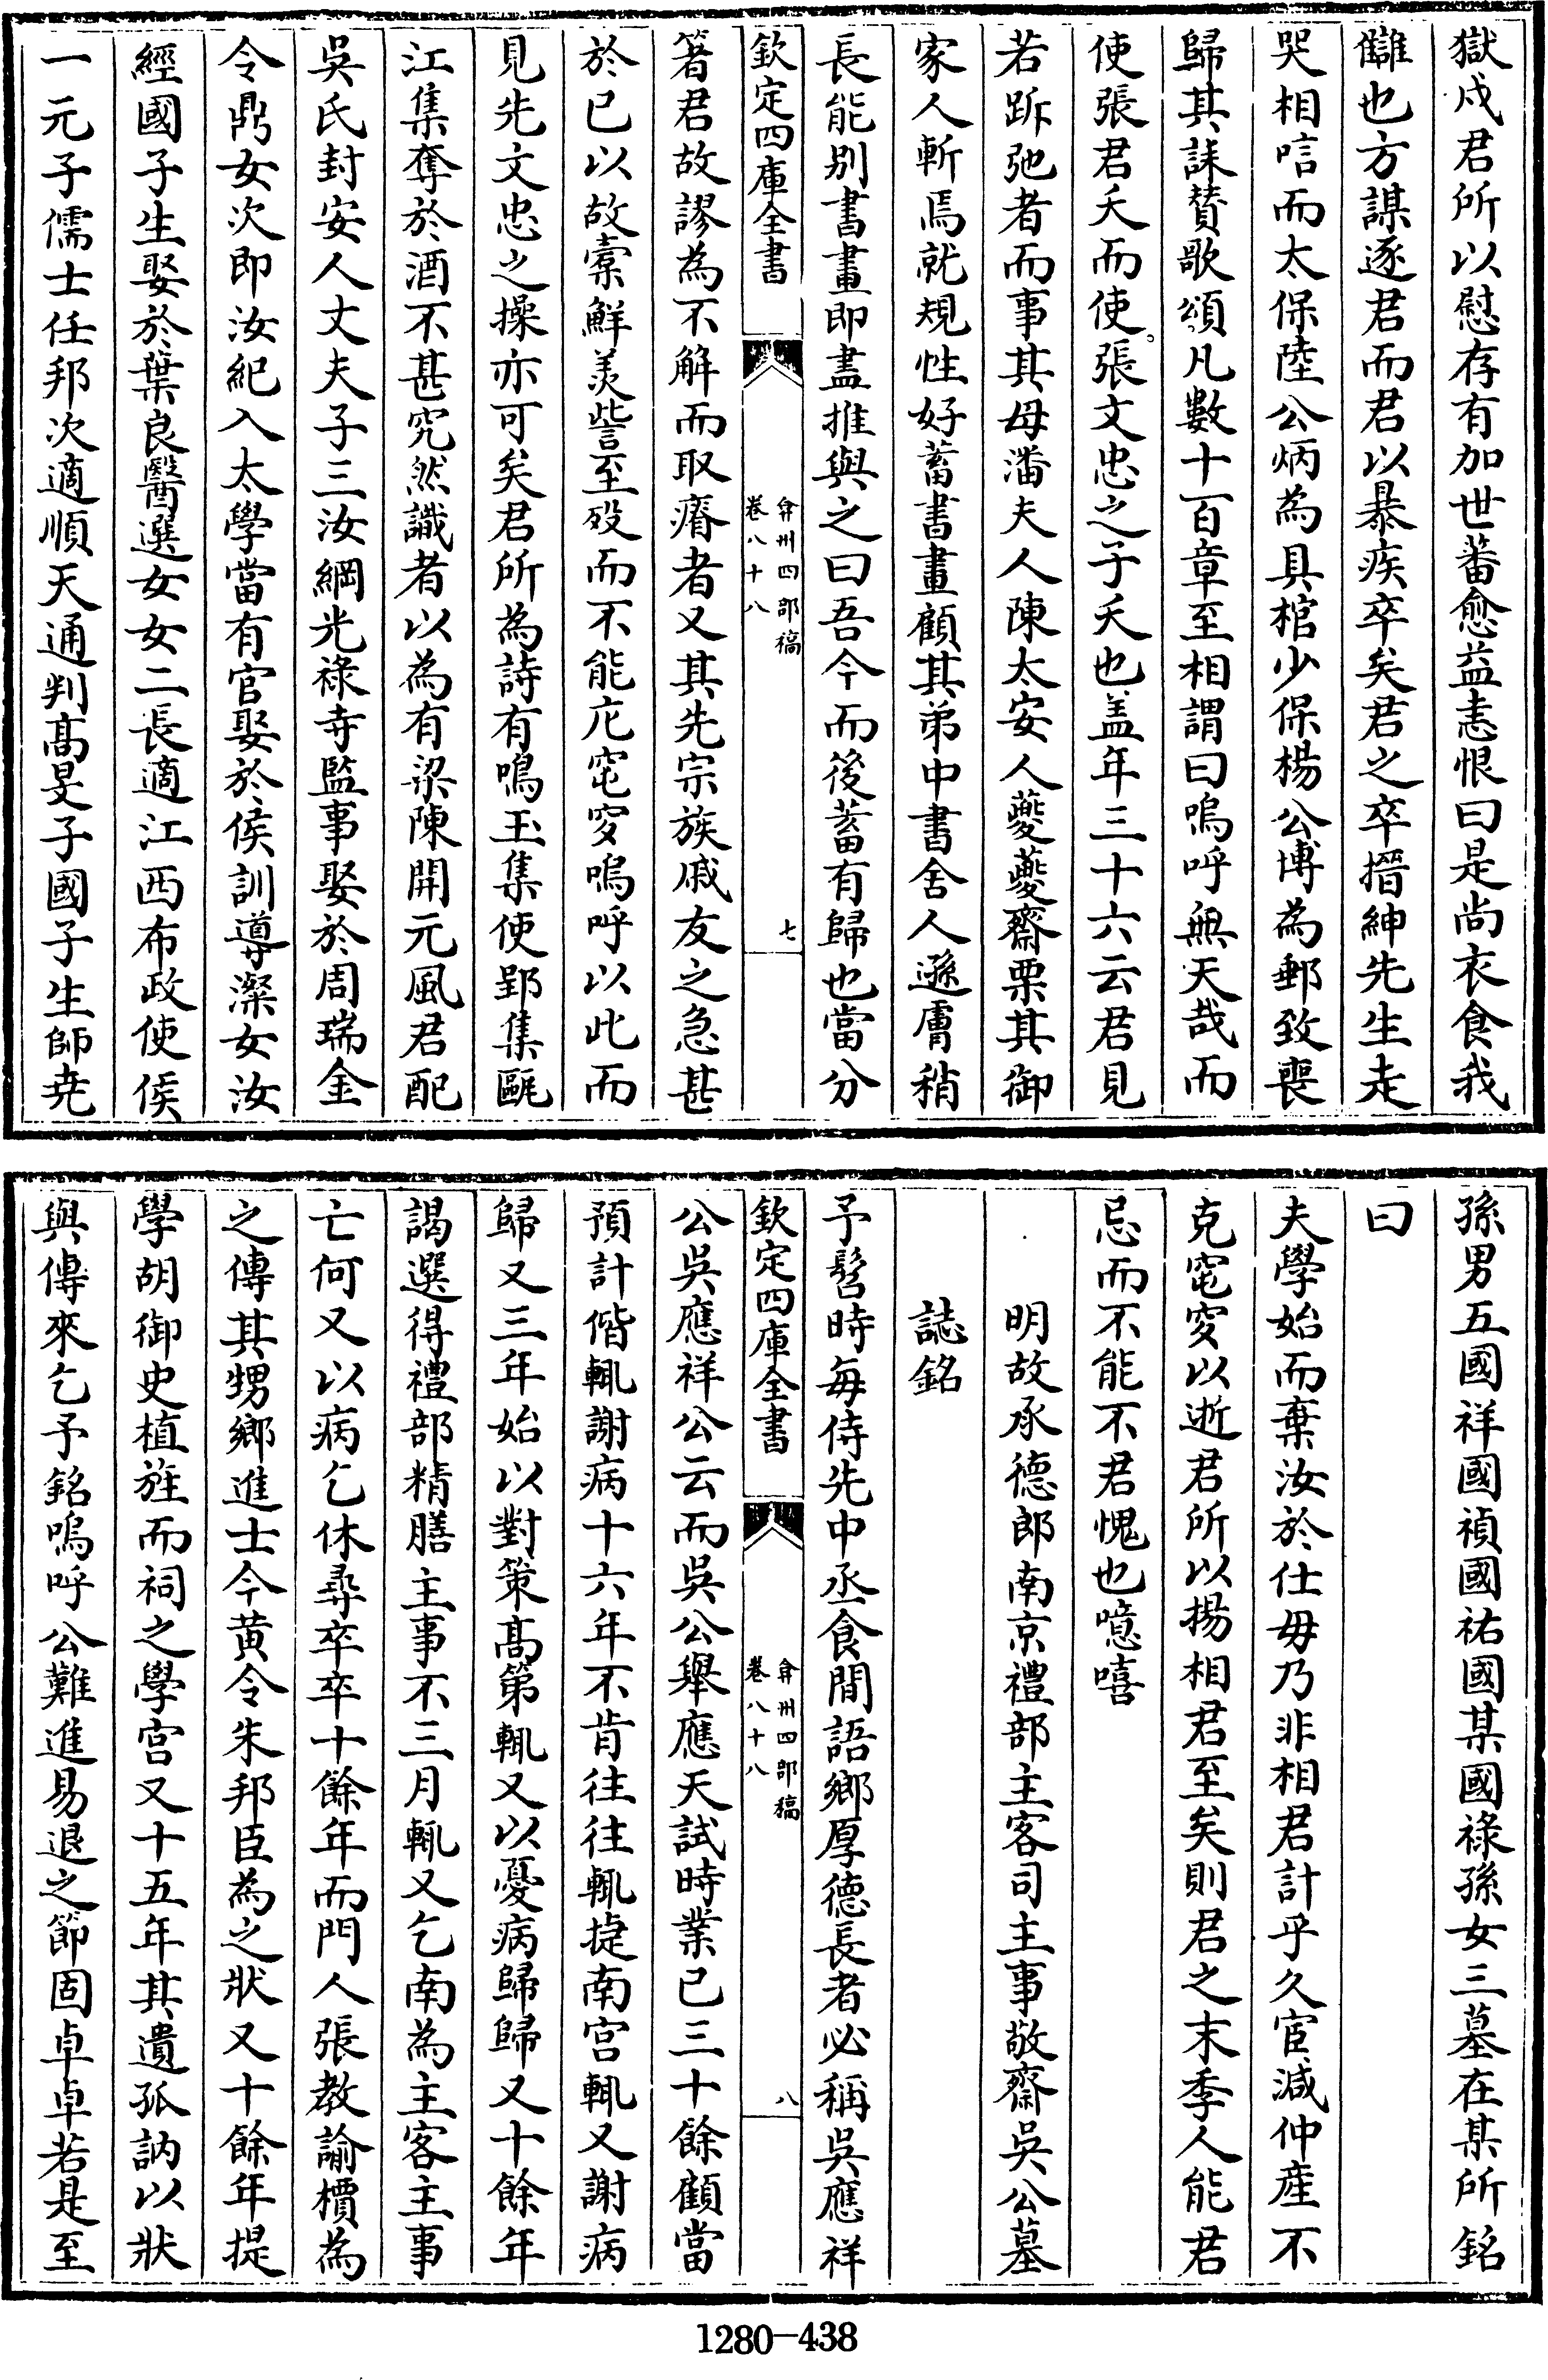 獄戍君所以慰存有加世蕃愈益恚恨曰是尚衣食我
讎也方謀逐君而君以暴疾卒矣君之卒搢紳先生走
哭相唁而太保陸公炳為具棺少保楊公博為郵致喪
歸其誄贊歌頌凡數十百章至相謂曰嗚呼無天哉而
使張君夭而使張文忠之子夭也盖年三十六云君見
若跅弛者而事其母潘夫人陳太安人夔夔齋栗其御
家人斬焉就規性好蓄書畫顧其弟中書舍人遜膚稍
長能别書畫即盡推與之曰吾今而後蓄有歸也當分
欽定四庫全書
弇州四部稿
卷八十八
七
箸君故謬為不解而取瘠者又其先宗族戚友之急甚
於已以故槖鮮羨訾至歿而不能庀窀穸嗚呼以此而
見先文忠之操亦可矣君所為詩有鳴玉集使郢集甌
江集奪於酒不甚究然識者以為有梁陳開元風君配
吳氏封安人丈夫子三汝綱光祿寺監事娶於周瑞金
令鼎女次即汝紀入太學當有官娶於侯訓導潔女汝
經國子生娶於葉良醫選女女二長適江西布政使侯
一元子儒士任邦次適順天通判高旻子國子生師堯
孫男五國祥國禎國祐國某國祿孫女三墓在某所銘
曰
夫學始而棄汝於仕毋乃非相君計乎久宦減仲産不
克窀穸以逝君所以揚相君至矣則君之末季人能君
忌而不能不君愧也噫嘻
明故承德郎南京禮部主客司主事敬齋吳公墓
誌銘
予髫時每侍先中丞食間語鄉厚德長者必稱吳應祥
欽定四庫全書
弇州四部稿
卷八十八
八
公吳應祥公云而吳公舉應天試時業已三十餘顧當
預計偕輒謝病十六年不肯往往輒捷南宫輒又謝病
歸又三年始以對策高第輒又以憂病歸歸又十餘年
謁選得禮部精膳主事不三月輒又乞南為主客主事
亡何又以病乞休尋卒卒十餘年而門人張教諭檟為
之傳其甥鄉進士今黄令朱邦臣為之狀又十餘年提
學胡御史植旌而祠之學宫又十五年其遺孤訥以狀
與傳來乞予銘嗚呼公難進易退之節固卓卓若是至
1280—438